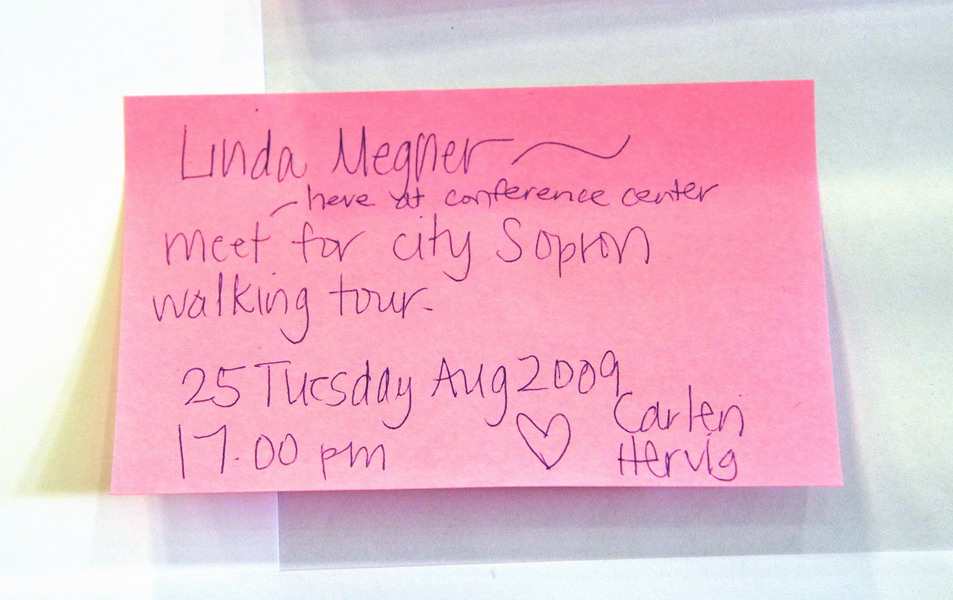 Linda Megner
here at conference center
meet for city Sopron
walking tour.
25 Tuesday Aug 2009
17.00 pm ♡ Carlen
Hervig